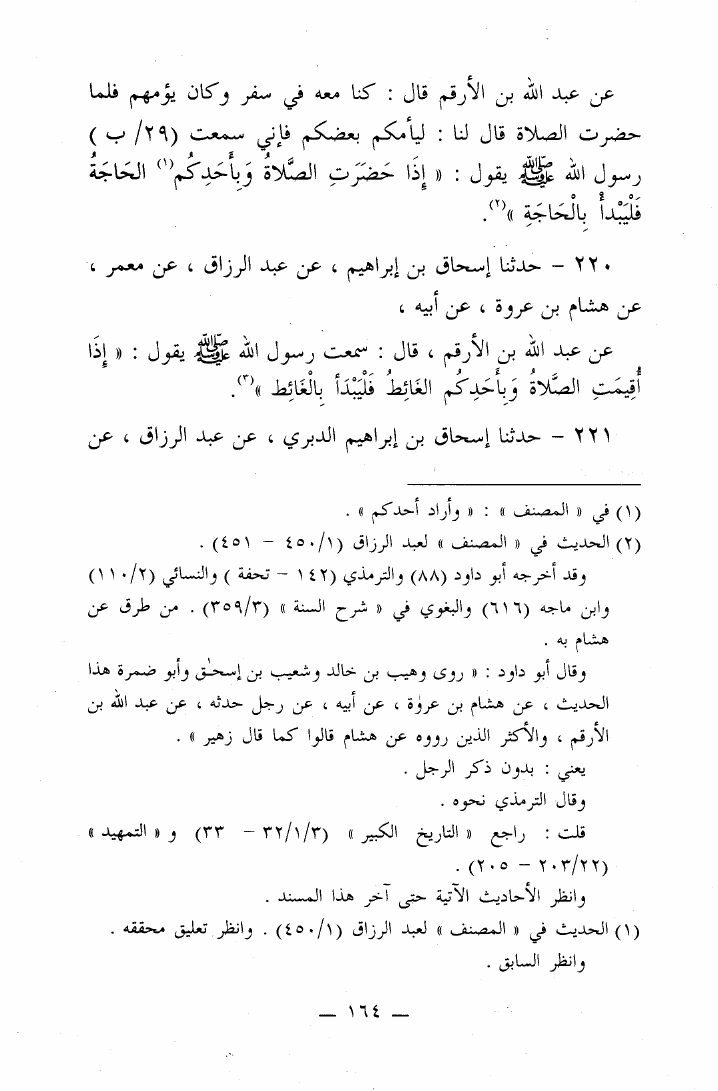 عن عبد الله بن الأرقم قال : كنا معه في سفر وكان يؤمهم فلما
حضرت الصلاة قال لنا : ليأمكم بعضكم فإني سمعت (٢٩/ ب )
رسول الله ﷺ يقول : « إِذَا حَضَرَتِ الصَّلاةُ وَبِأَحَدِكُم(١) الحَاجَةُ
فَلْيَبْدأْ بِالْحَاجَةِ »(٢).
٢٢٠ – حدثنا إسحاق بن إبراهيم ، عن عبد الرزاق ، عن معمر ،
عن هشام بن عروة ، عن أبيه ،
عن عبد الله بن الأرقم ، قال : سمعت رسول الله ﷺ يقول : « إِذَا
أُقِيمَتِ الصَّلاةُ وَبِأَحَدِكُم الغَائِطُ فَلْيَبْدَأ بِالْغَائِط »(٣).
٢٢١ – حدثنا إسحاق بن إبراهيم الدبري ، عن عبد الرزاق ، عن
(١) في « المصنف » : « وأراد أحدكم » .
(٢) الحديث في « المصنف » لعبد الرزاق (٤٥٠/١ – ٤٥١) .
وقد أخرجه أبو داود (٨٨) والترمذي (١٤٢ – تحفة ) والنسائي (١١٠/٢)
وابن ماجه (٦١٦) والبغوي في « شرح السنة » (٣٥٩/٣) . من طرق عن
هشام به .
وقال أبو داود : « روى وهيب بن خالد وشعيب بن إسحٰق وأبو ضمرة هذا
الحديث ، عن هشام بن عروٰة ، عن أبيه ، عن رجل حدثه ، عن عبد الله بن
الأرقم ، والأكثر الذين رووه عن هشام قالوا كما قال زهير » .
يعني : بدون ذكر الرجل .
وقال الترمذي نحوه .
قلت : راجع « التاريخ الكبير » (٣٢/١/٣ – ٣٣) و « التمهيد »
(٢٠٣/٢٢ – ٢٠٥) .
وانظر الأحاديث الآتية حتى آخر هذا المسند .
(١) الحديث في « المصنف » لعبد الرزاق (٤٥٠/١) . وانظر تعليق محققه .
وانظر السابق .
– ١٦٤ –